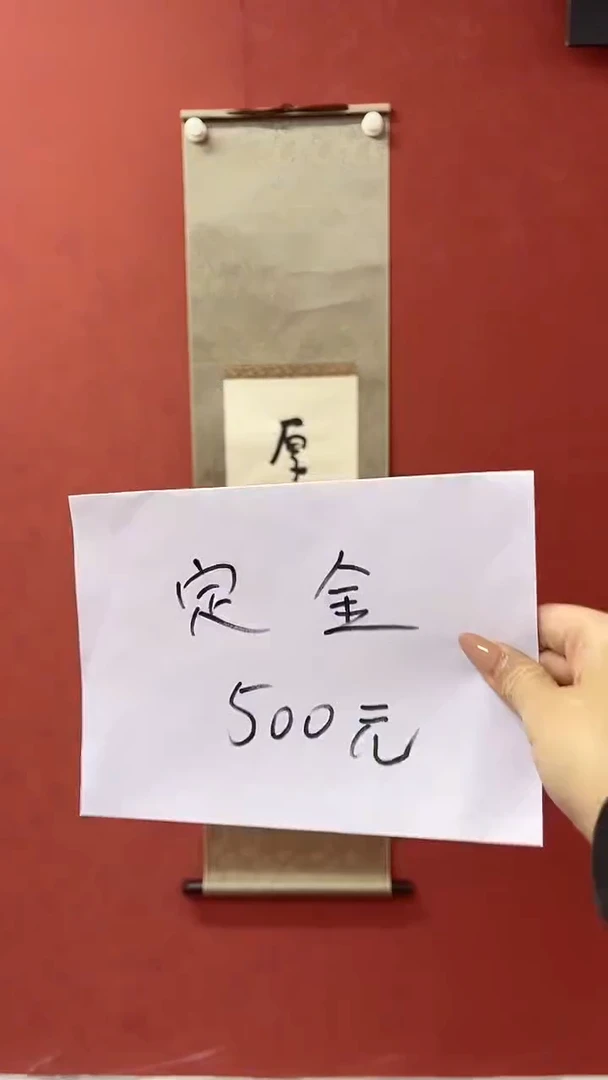 厚
定金
500元